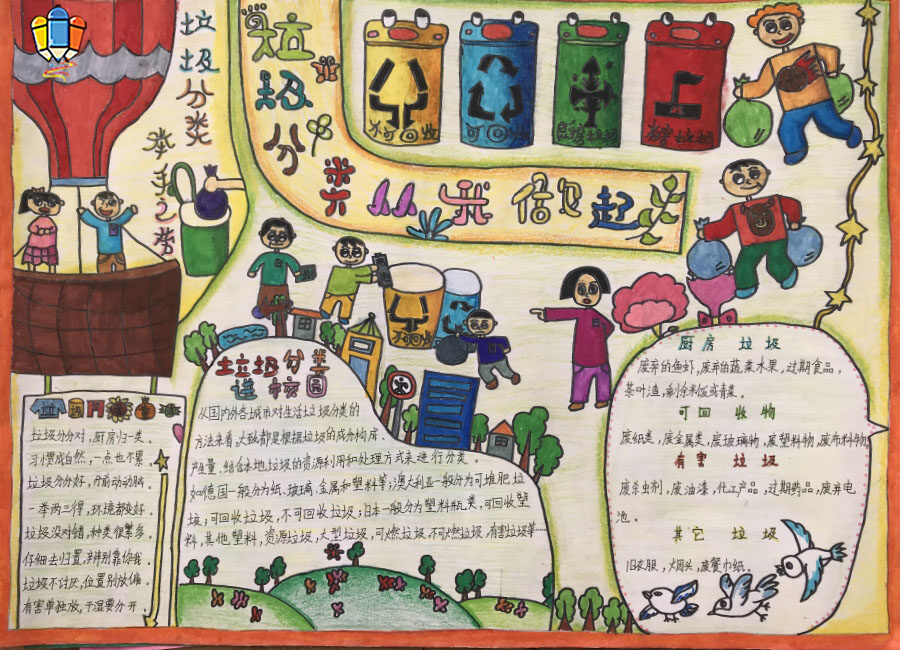 垃圾分类
举手之劳
垃圾分类从我做起
不可回收
可回收
厨房垃圾
有害垃圾
不可回收
垃圾分类
进校园
从国内外各城市对生活垃圾分类的
方法来看，大致都是根据垃圾的成分构成、
产生量，结合本地垃圾的资源利用和处理方式来进行分类。
如德国一般分为纸、玻璃、金属和塑料等；澳大利亚一般分为可堆肥垃
圾；可回收垃圾，不可回收垃圾；日本一般分为塑料瓶类，可回收塑
料，其他塑料，资源垃圾，大型垃圾，可燃垃圾，不可燃垃圾，有害垃圾等……
垃圾分分对，厨房归一类。
习惯成自然，一点也不累。
垃圾分分好，升前动动脑。
一举两三得，环境都变好。
垃圾没对错，种类很繁多，
仔细去归置，辨别靠你我。
垃圾不讨厌，位置别放偏。
有害单独放，干湿要分开。
厨房 垃圾
废弃的鱼虾，废弃的蔬菜水果，过期食品，
茶叶渣，剩余米饭或青菜。
可回 收物
废纸类，废金属类，废玻璃物，废塑料物，废布料物
有害 垃圾
废杀虫剂，废油漆，化工产品，过期药品，废弃电
池。
其它 垃圾
旧衣服，烟头，废餐巾纸。